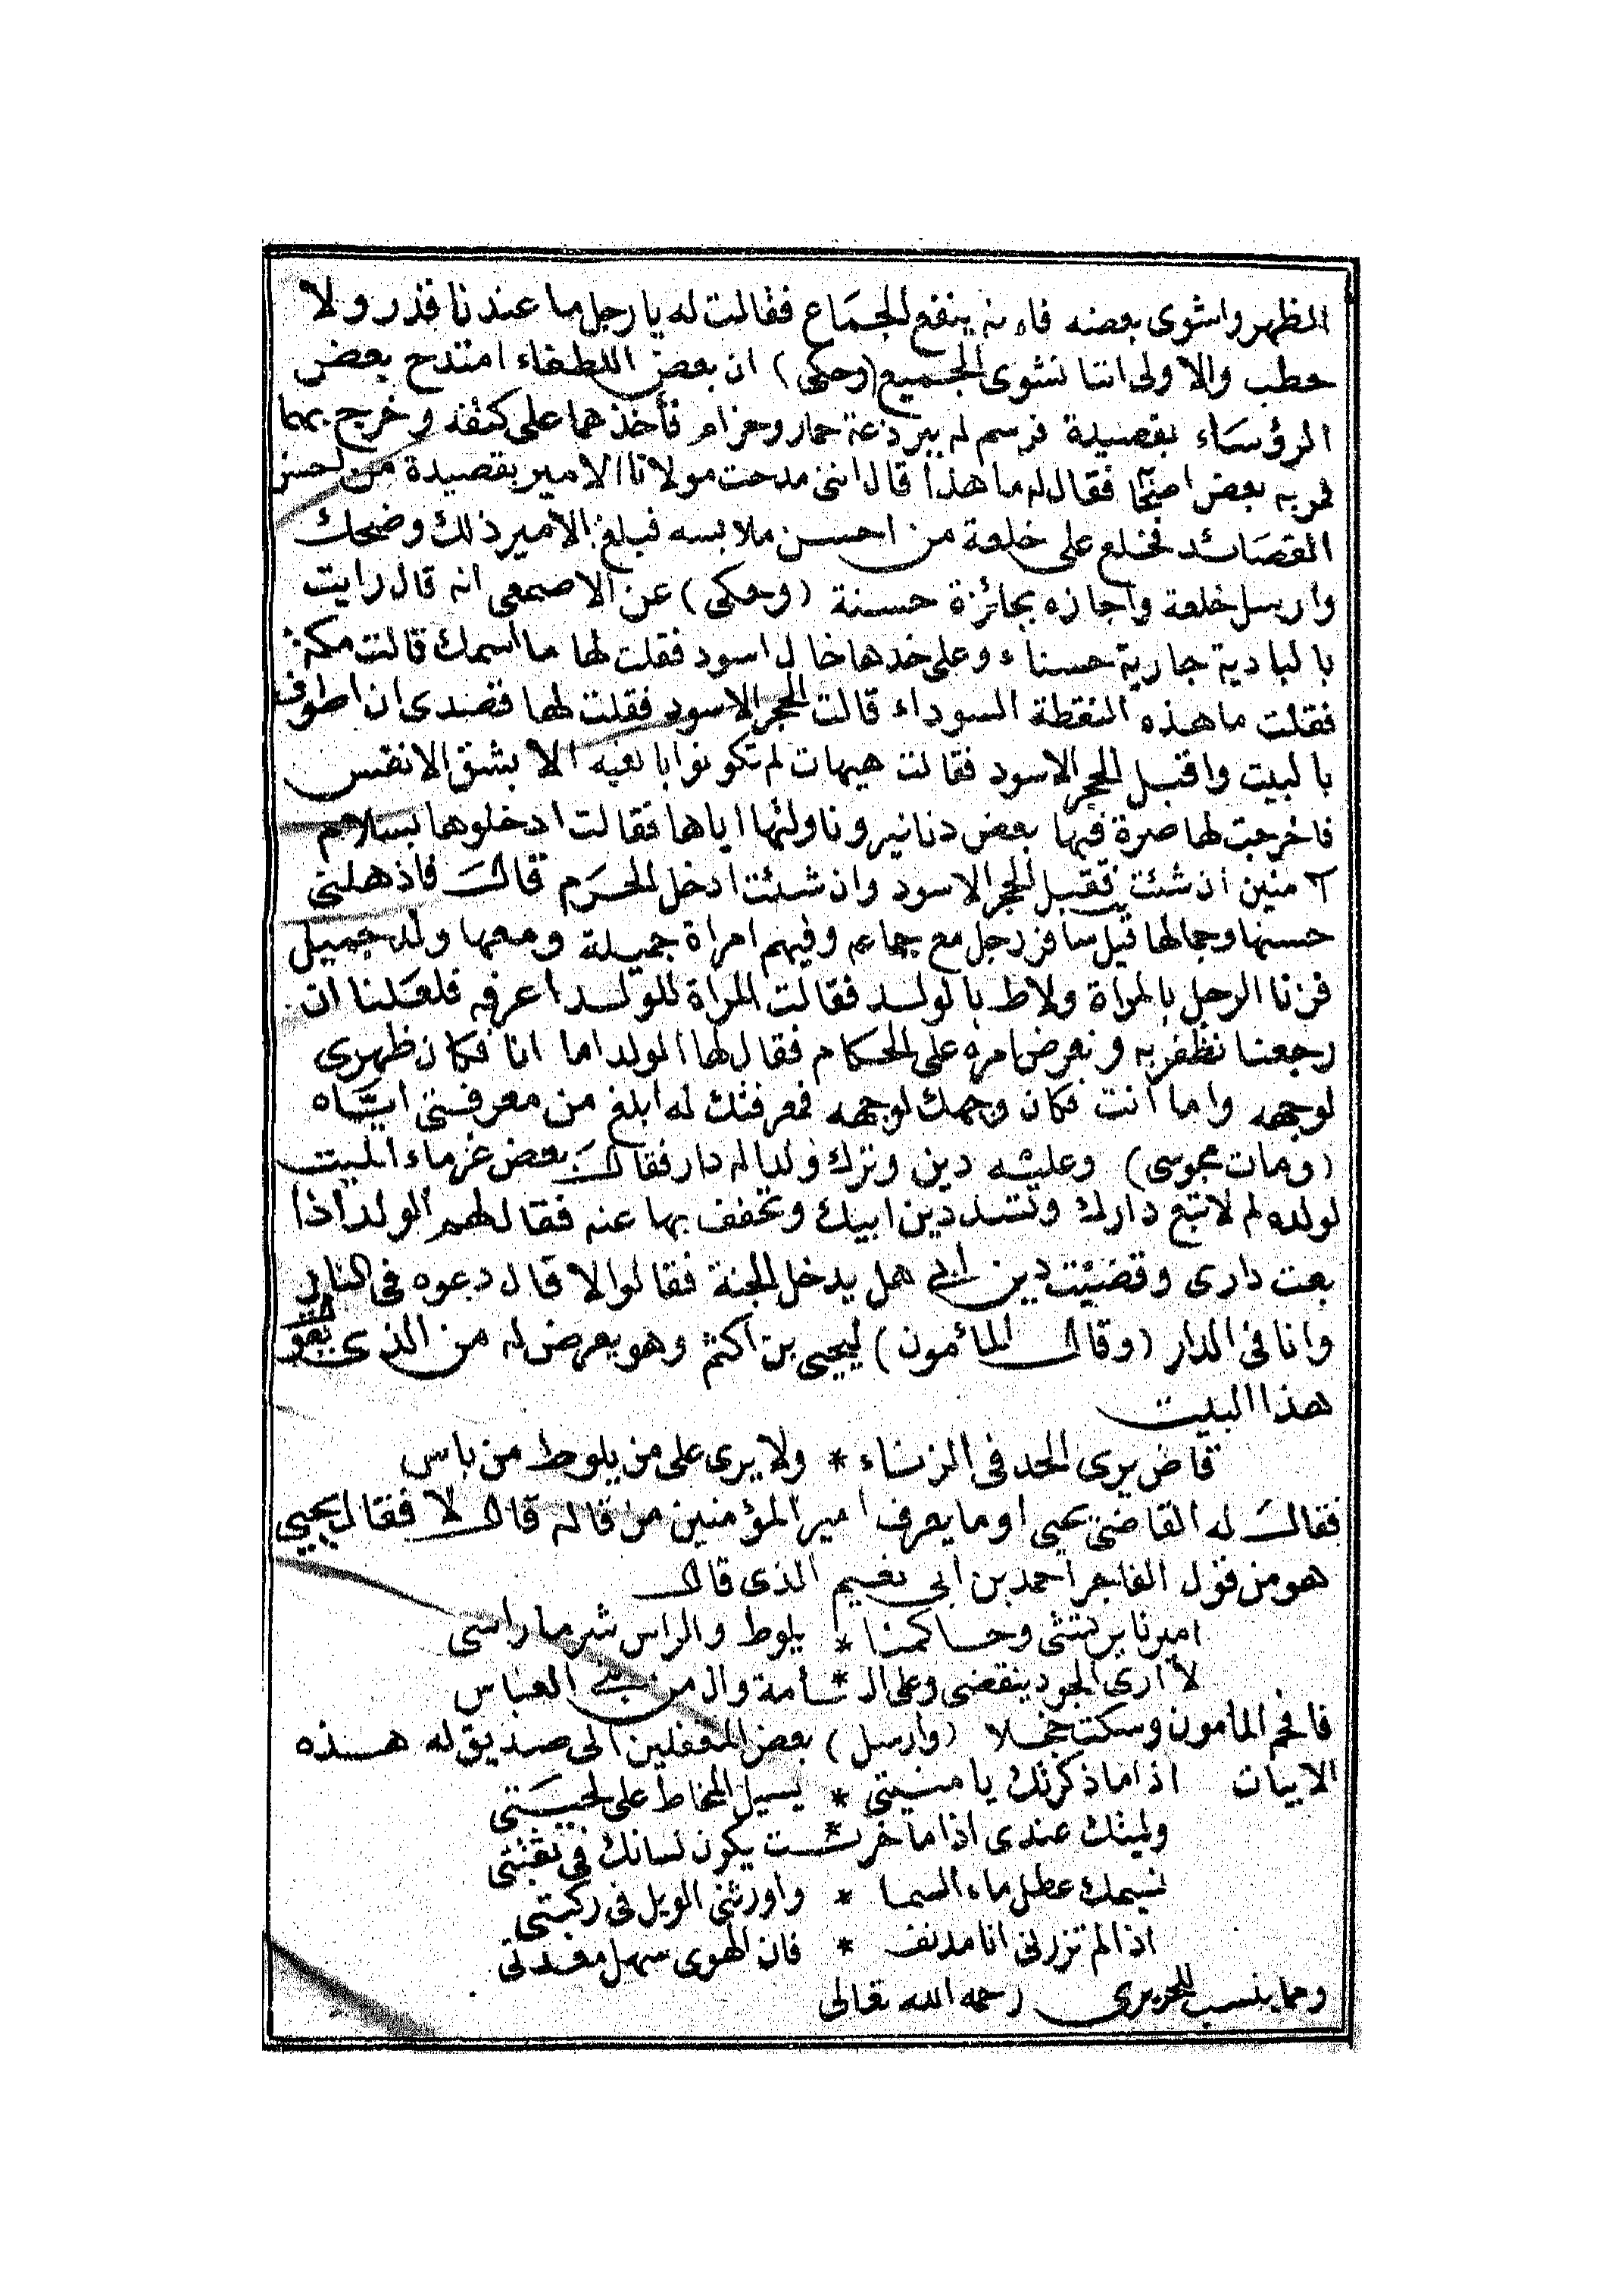 الظهر واشوى بعضه فاء نه ينفع للجماع فقالت له يا رجل ما عندنا قدر ولا
حطب والا ولى اننا نشوى الجميع (وحكى) ان بعض اللطفاء امتدح بعض
الرؤساء بقصيدة فرسم له ببردعة حمار وحزام فأخذهما على كتفه وخرج بهما
فمر به بعض اصحا فقال له ما هذا قال اننى مدحت مولانا الامير بقصيدة من احسن
القصائد فخلع على خلعة من احسن ملابسه فبلغ الامير ذلك وضحك
وارسل خلعة واجازه بجائزة حسنة (وحكى) عن الاصمعى انه قال رايت
بالبادية جارية حسناء وعلى خدها خال اسود فقلت لها ما اسمك قالت مكة
فقلت ما هذه النقطة السوداء قالت الحجر الاسود فقلت لها قصدى ان اطوف
بالبيت واقبل الحجر الاسود فقالت هيهات لم تكونوا بالغيه الا بشق الانفس
فاخرجت لها صرة فيها بعض دنانير وناولتها اياها فقالت ادخلوها بسلام
آمنين ان شئت فقبل الحجر الاسود وان شئت ادخل الحرم قال فاذهلنى
حسنها وجمالها قيل سافر رجل مع جماعه وفيهم امراة جميلة ومعها ولد جميل
فزنا الرجل بالمراة ولاط بالولد فقالت المراة للولد اعرفه فلعلنا ان
رجعنا نظفر به ونعرض امره على الحكام فقال لها الولد اما انا فكان ظهرى
لوجهه واما انت فكان وجهك لوجهه فمعرفتك له ابلغ من معرفتى اياه
(ومات مجوسى) وعليه دين وترك ولدا له دار فقال بعض غرماء الميت
لولده لم لا تبع دارك وتسد دين ابيك وتخفف بها عنه فقال لهم الولد اذا
بعت دارى وقضيت دين ابى هل يدخل الجنة فقالوا لا قال دعوه فى النار
وانا فى الدار (وقال المأمون) ليحيى بن اكثم وهو يعرض له من الذى يقو
هذا البيت
قاض يرى الحد فى الزناء * ولا يرى على من يلوط من باس
فقال له القاضى يحيى او ما يعرف امير المؤمنين من قاله قال لا فقال يحيى
هو من قول الفاجر احمد بن ابى نعيم الذى قال
اميرنا يرتشى وحاكمنا * يلوط والراس شر ما راسى
لا ارى الجور ينقضى وعلى ال * امة وال من بنى العباس
فافحم المامون وسكت خجلا (وارسل) بعض المغفلين الى صديق له هذه
الابيات اذا ما ذكرتك يا منيتى * يسيل المخاط على لحيتى
وليتك عندى اذا ما خريت * يكون لسانك فى تقنتى
نسيمك عطل ماء السما * واورثنى الويل فى ركبتى
اذا لم تزرنى انا مدنف * فان الهوى سهل معدتى
ومما ينسب للحريرى رحمه الله تعالى